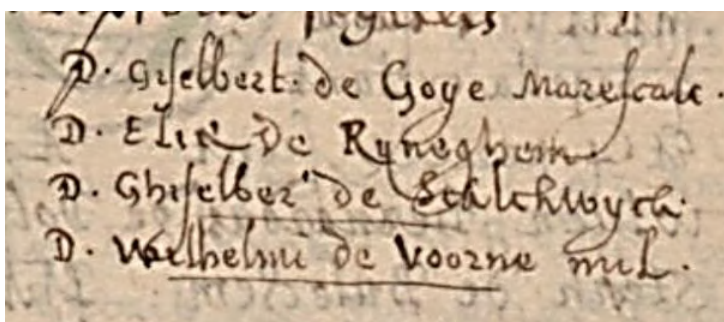 D. Giselbert. de Goye Marescalc.
D. Elie de Ryneghem
D. Ghiselber' de Scalchwyck.
D. Wilhelmi de Voorne mil.